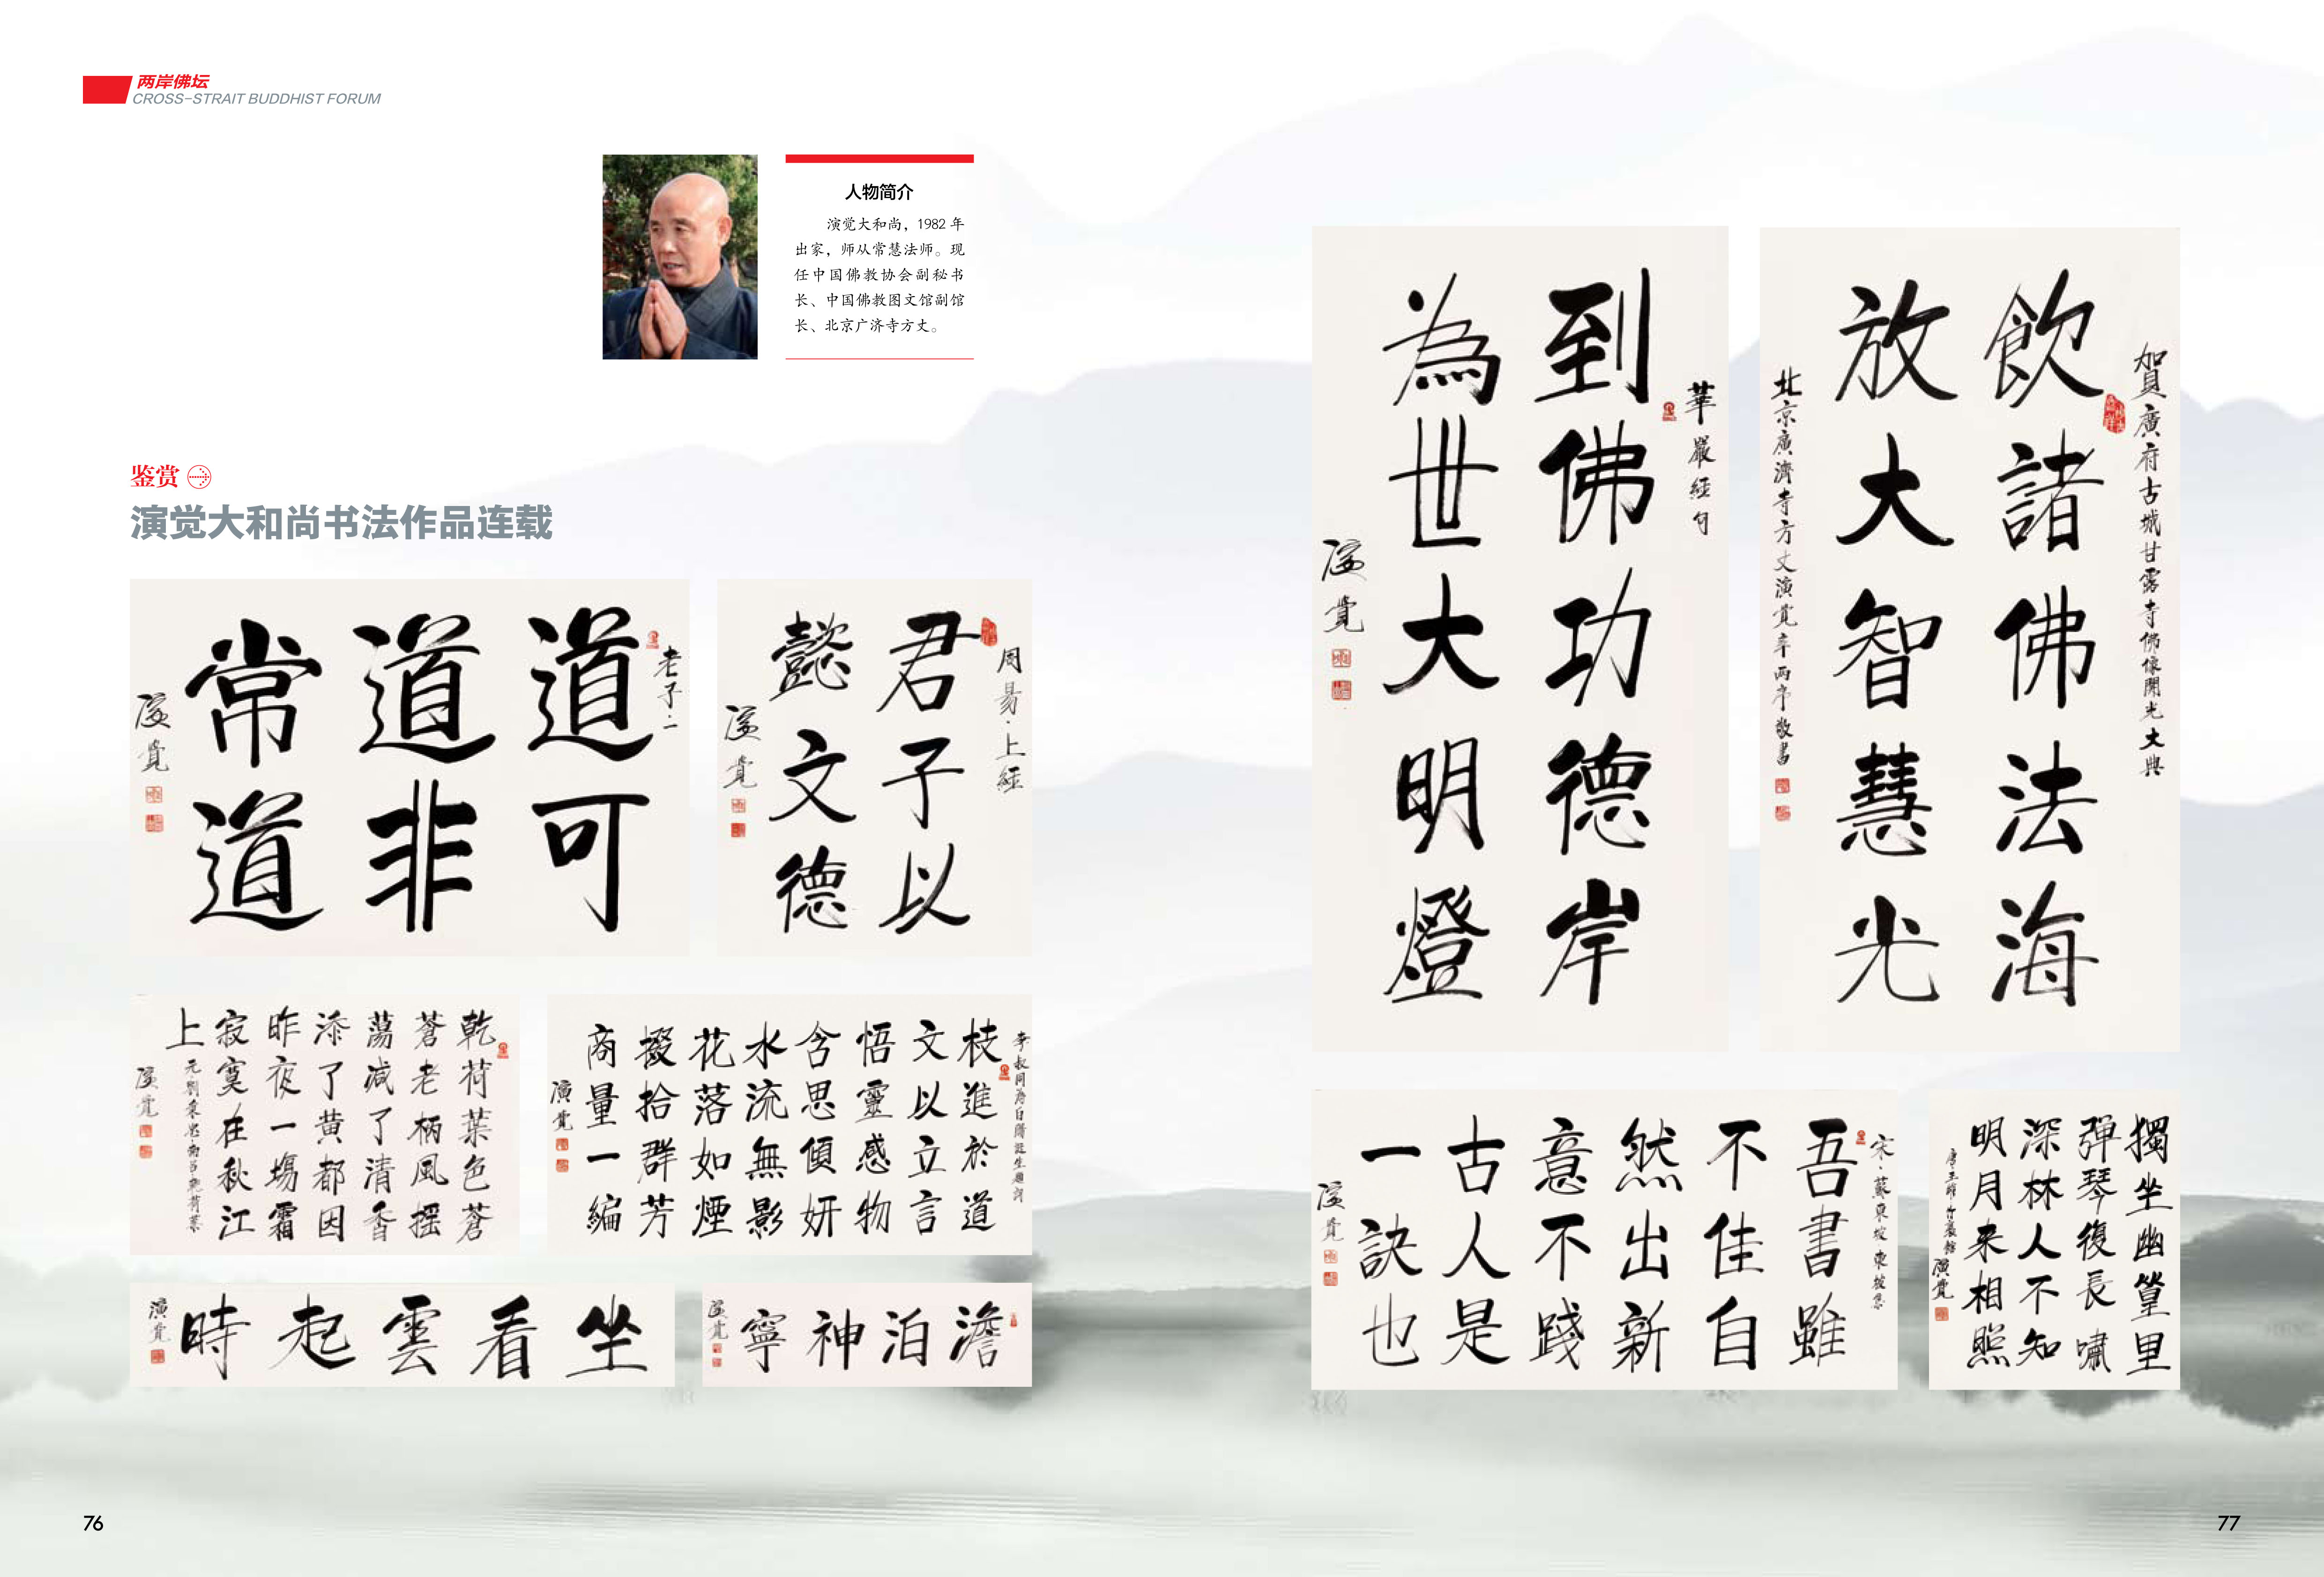 两岸佛坛
CROSS-STRAIT BUDDHIST FORUM
人物简介
演觉大和尚，1982 年
出家，师从常慧法师。现
任中国佛教协会副秘书
长、中国佛教图文馆副馆
长、北京广济寺方丈。
鉴赏
演觉大和尚书法作品连载
老子·二
道可
道非
常道
演覺
周易·上經
君子以
懿文德
演覺
乾荷葉色蒼
蒼老柄風摇
蕩减了清香
添了黄都因
昨夜一塲霜
寂寞在秋江
上
元·劉秉忠·南吕·乾荷葉
演覺
枝進於道
文以立言
悟靈感物
含思傾妍
水流無影
花落如煙
掇拾群芳
商量一編
演覺
坐看雲起時
演覺
澹泊神寧
演覺
華嚴經句
到佛功德岸
為世大明燈
演覺
賀廣府古城甘露寺佛像開光大典
飲諸佛法海
放大智慧光
北京廣濟寺方丈演覺辛丙序敬書
宋·蘇東坡 東坡集
吾書雖
不佳自
然出新
意不踐
古人是
一訣也
演覺
獨坐幽篁里
彈琴復長嘯
深林人不知
明月来相照
唐·王維·竹裏館
演覺
76
77